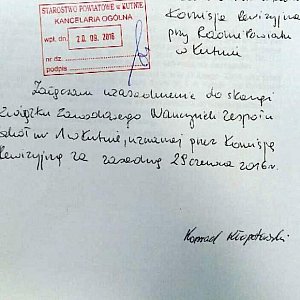 STAROSTWO POWIATOWE w KUTNIE
KANCELARIA OGÓLNA
wpł. dn. 20. 09. 2016
nr dz.
podpis
Komisja Rewizyjna
przy Radzie Powiatu
w Kutnie
Załączam uzasadnienie do skargi
Związku Zawodowego Nauczycieli Zespołu
Szkół nr 1 w Kutnie, uznanej przez Komisję
Rewizyjną za zasadną 29 czerwca 2016 r.
Konrad Kłopotowski